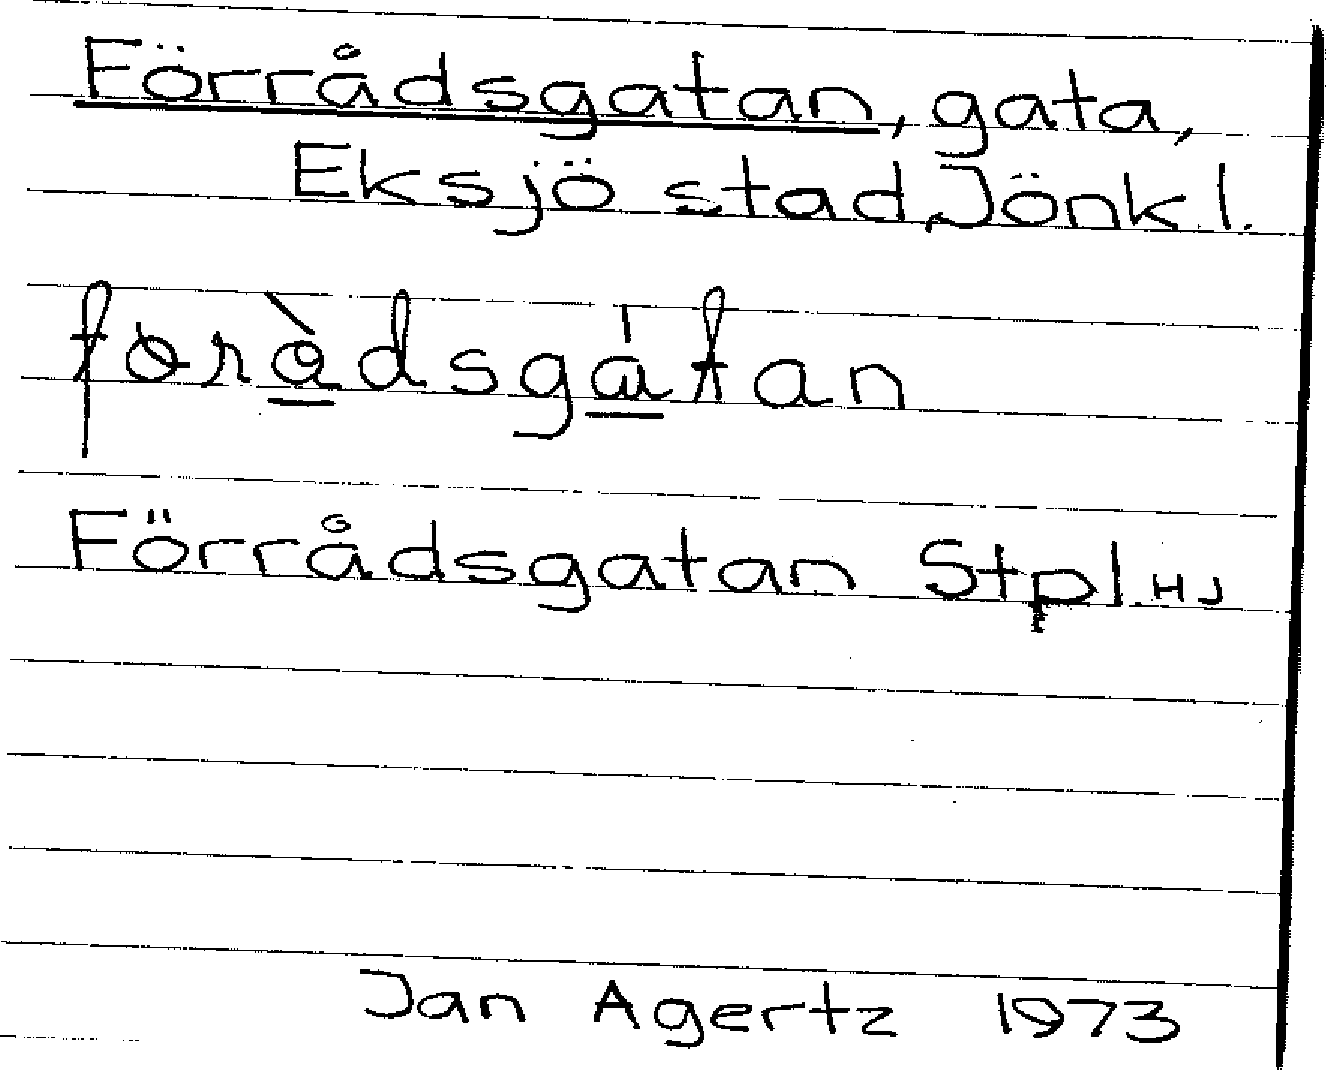 Förrådsgatan, gata,
Eksjö stad, Jönk l.
føràdsgátan
Förrådsgatan Stpl. HJ
Jan Agertz 1973